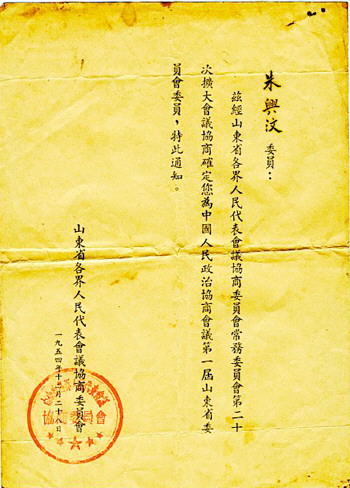 朱興汶 委員：
茲經山東省各界人民代表會議協商委員會常務委員會第二十
次擴大會議協商確定您為中國人民政治協商會議第一屆山東省委
員會委員，特此通知。
山東省各界人民代表會議協商委員會
一九五四年十二月二十八日
協商委員會